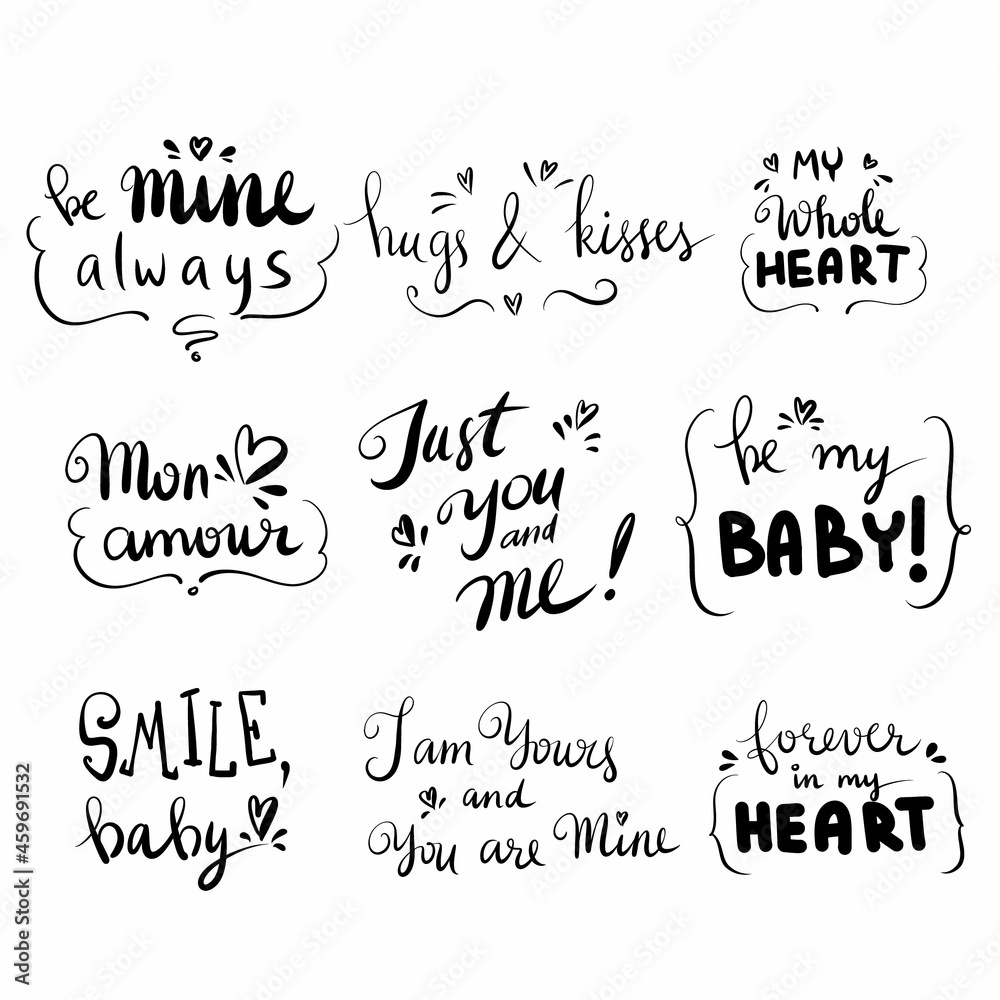 be mine
always
hugs & kisses
MY
Whole
HEART
Mon
amour
Just
you
and
me!
be my
BABY!
SMILE,
baby
I am Yours
and
You are Mine
forever
in my
HEART
Adobe Stock | #459691532